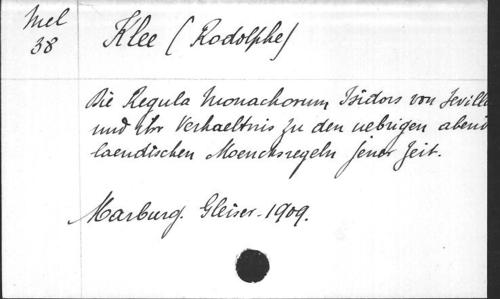 Mel
38
Klee (Rodolphe)
Die Regula Monachorum Isidors von Sevilla
und ihr Verhaeltnis zu den uebrigen abend
laendischen Moenchsregeln jener Zeit.
Marburg. Gleiser - 1909.